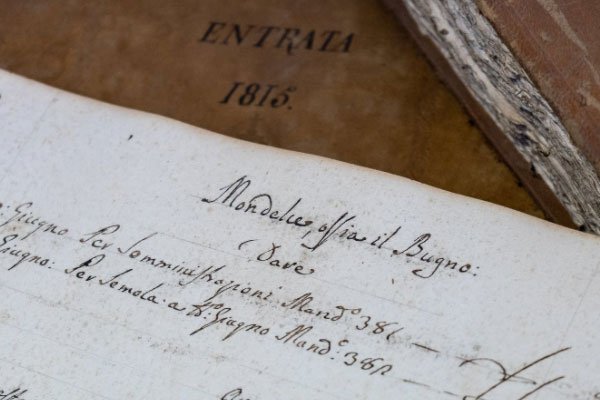 ENTRATA
1815.
Mondelce, ossia il Bugno:
Dare
Giugno Per Somministrazioni Mand.° 381
Giugno: Per Semola a tt.° Giugno Mand.° 382